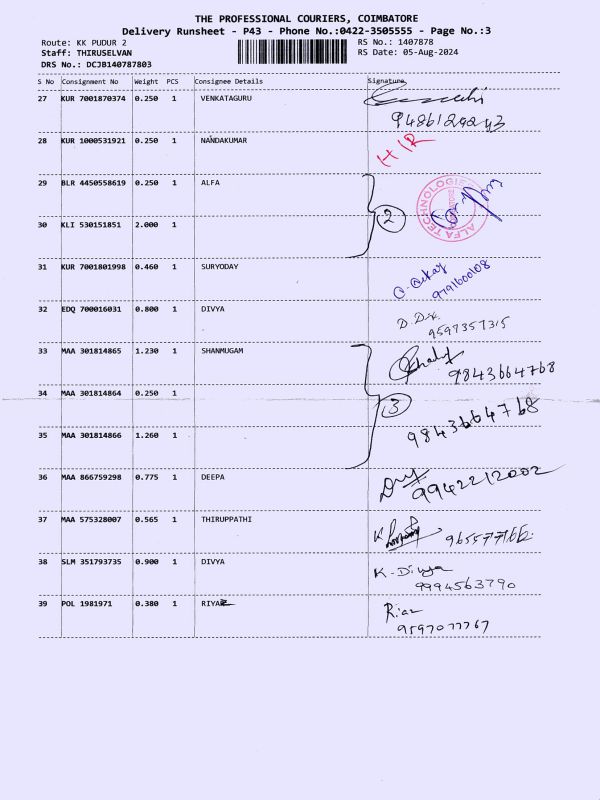 THE PROFESSIONAL COURIERS, COIMBATORE
Delivery Runsheet - P43 - Phone No.:0422-3505555 - Page No.:3
Route: KK PUDUR 2 RS No.: 1407878
Staff: THIRUSELVAN RS Date: 05-Aug-2024
DRS No.: DCJB140787803
S No Consignment No Weight PCS Consignee Details Signature
27 KUR 7001870374 0.250 1 VENKATAGURU
28 KUR 1000531921 0.250 1 NANDAKUMAR H/R
29 BLR 4450558619 0.250 1 ALFA
2 ALFA TECHNOLOGIES
30 KLI 530151851 2.000 1
31 KUR 7001801998 0.460 1 SURYODAY
9791600108
32 EDQ 700016031 0.800 1 DIVYA D.Dx.
9597357315
33 MAA 301814865 1.230 1 SHANMUGAM
9843664768
34 MAA 301814864 0.250 1
3 9843664768
35 MAA 301814866 1.260 1
36 MAA 866759298 0.775 1 DEEPA
9942212002
37 MAA 575328007 0.565 1 THIRUPPATHI
38 SLM 351793735 0.900 1 DIVYA K-Divya
9994563790
39 POL 1981971 0.380 1 RIYAZ Riaz
9597077767